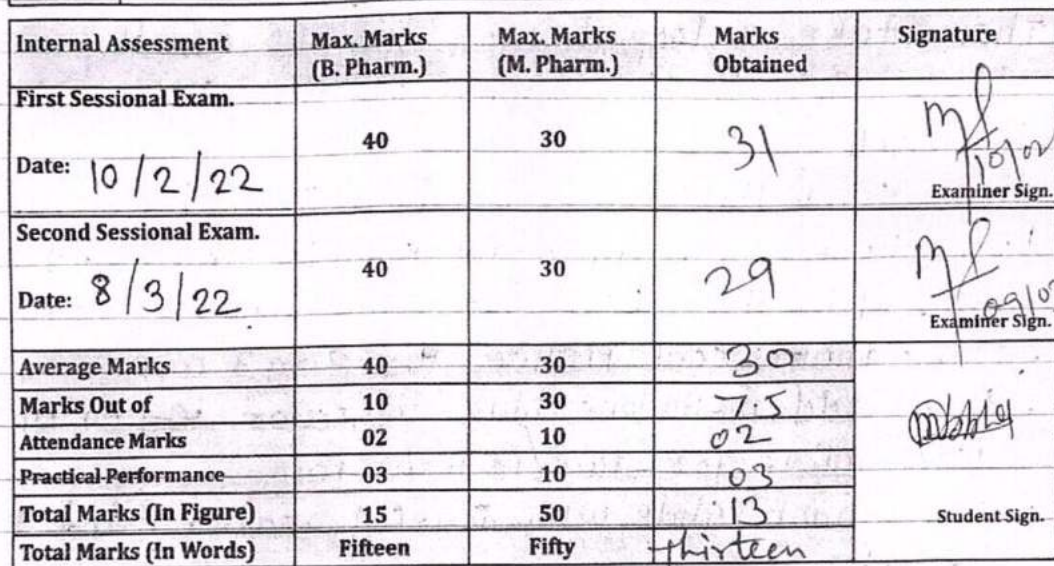 Internal Assessment Max. Marks (B. Pharm.) Max. Marks (M. Pharm.) Marks Obtained Signature
First Sessional Exam.
Date: 10/2/22 40 30 31
Examiner Sign.
Second Sessional Exam.
Date: 8/3/22 40 30 29
Examiner Sign.
Average Marks 40 30 30
Marks Out of 10 30 7.5
Attendance Marks 02 10 02
Practical Performance 03 10 03
Total Marks (In Figure) 15 50 13 Student Sign.
Total Marks (In Words) Fifteen Fifty thirteen